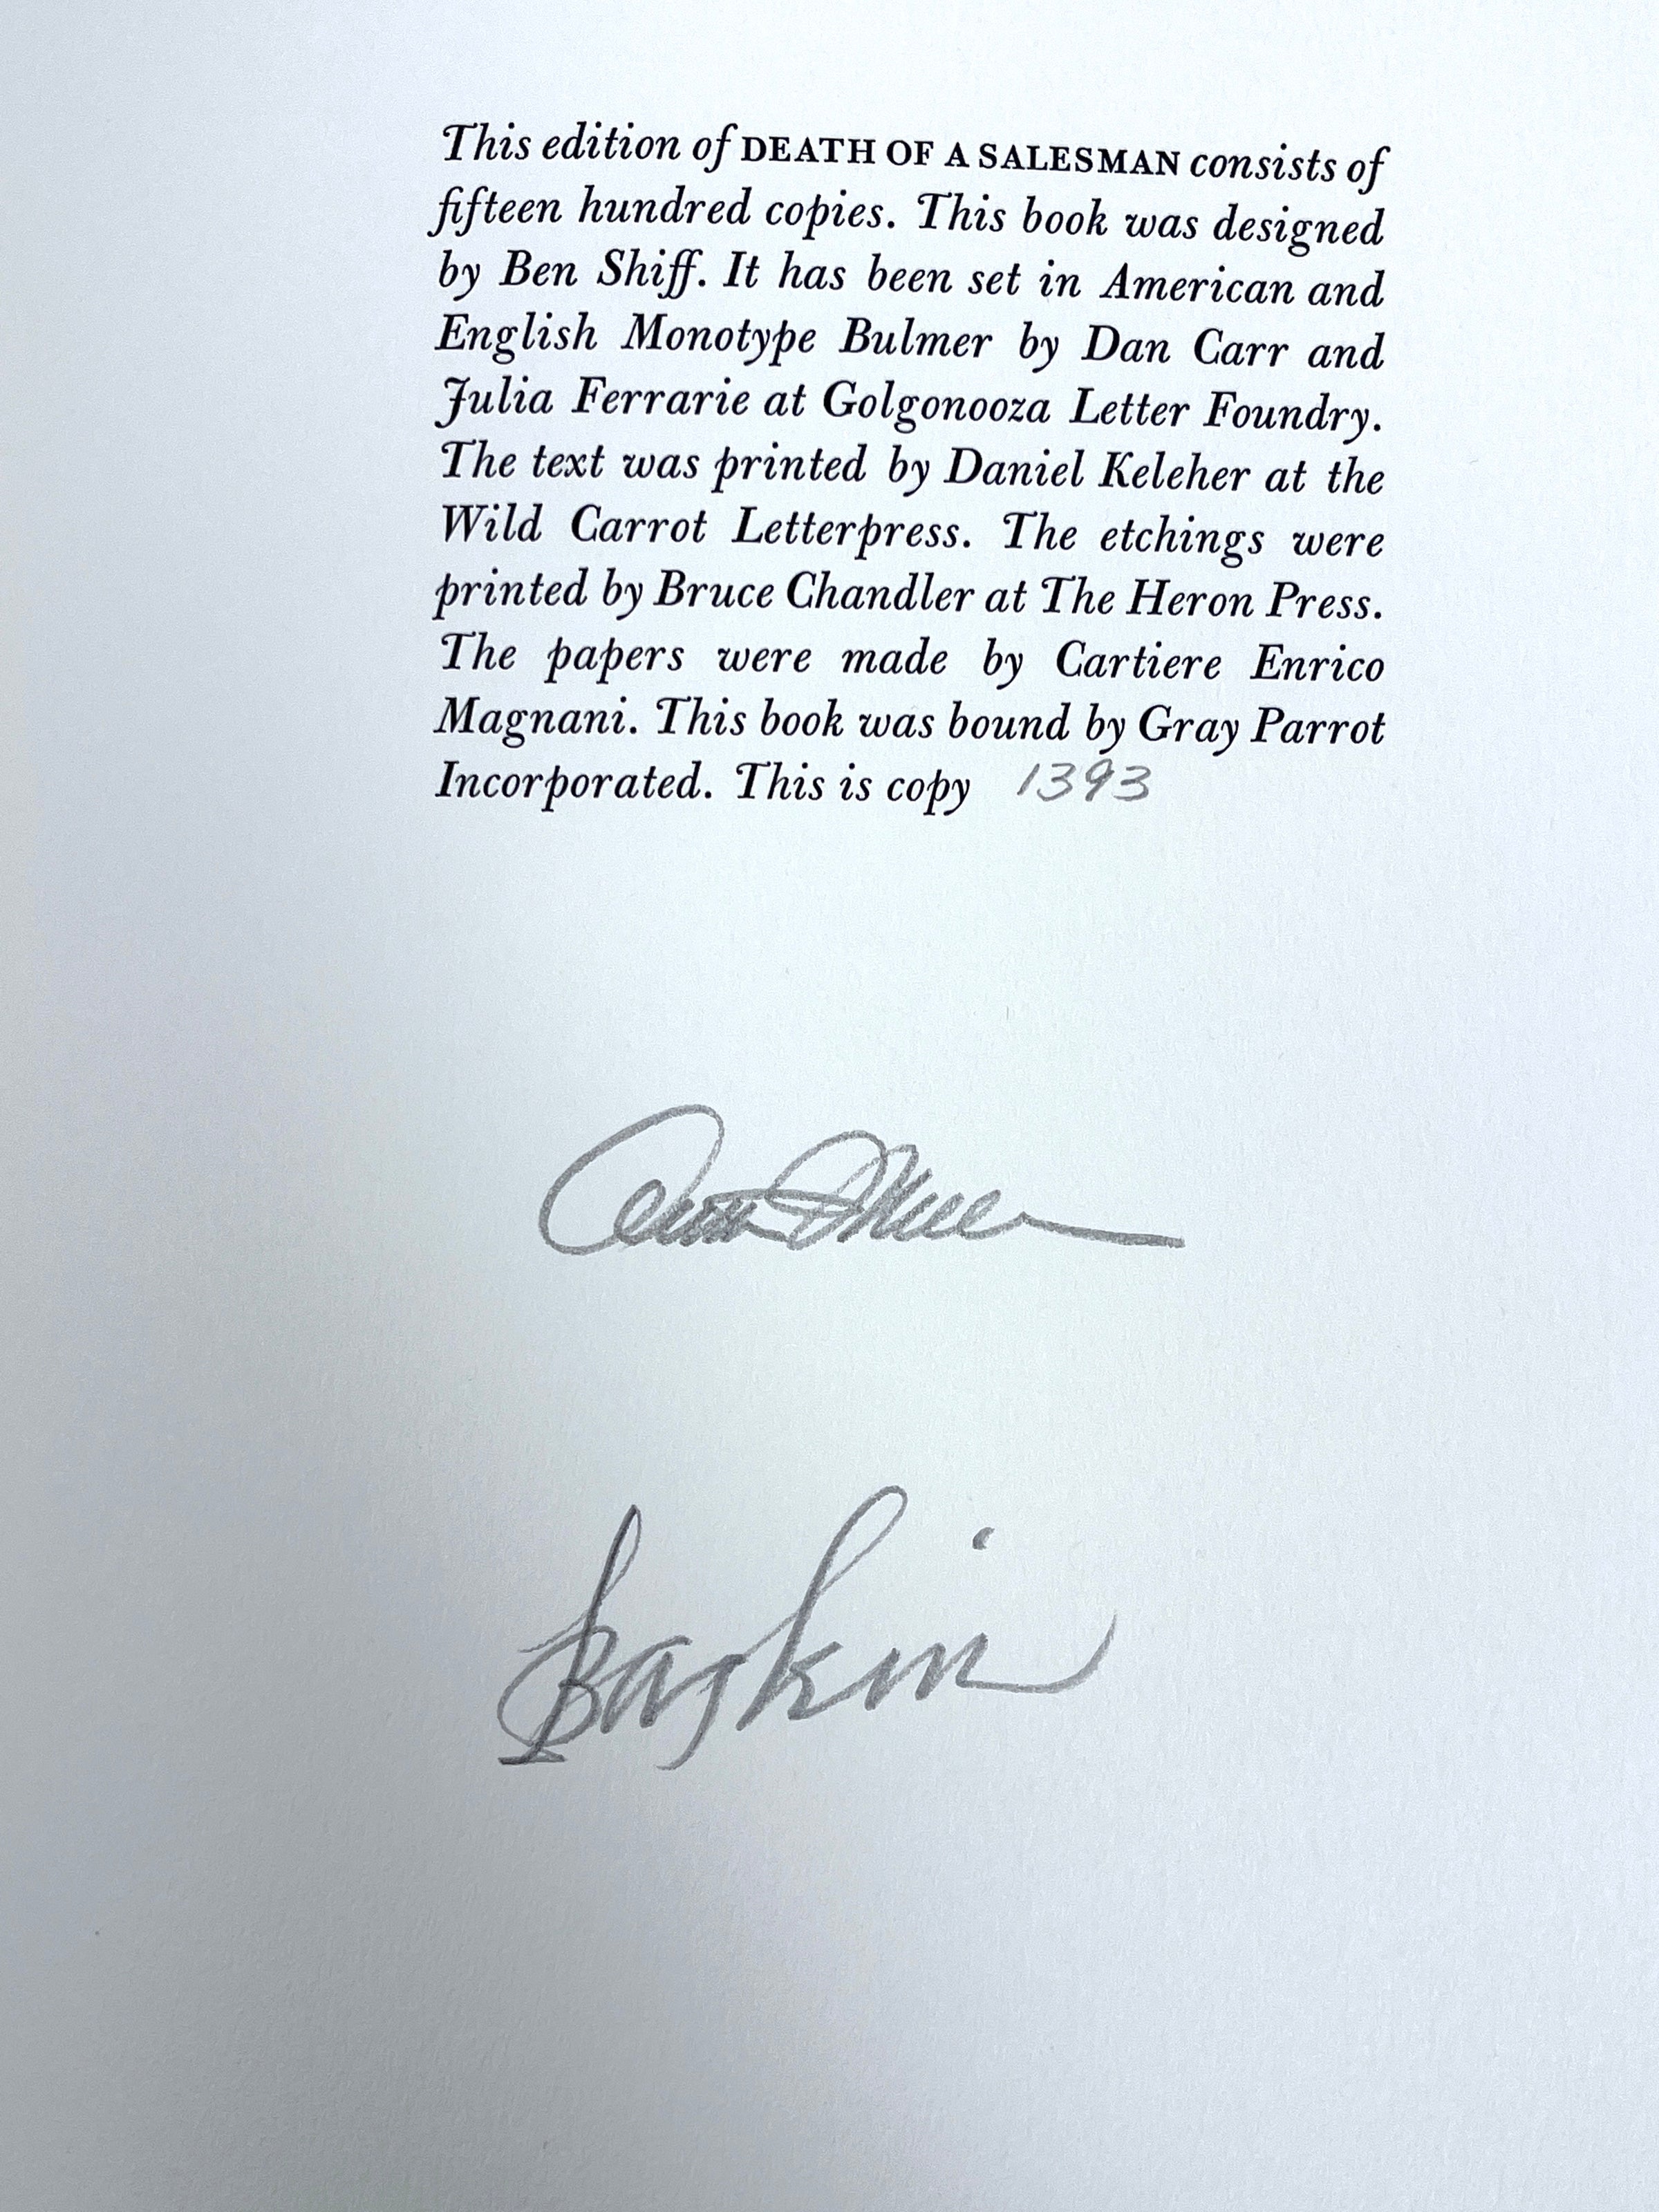 This edition of DEATH OF A SALESMAN consists of
fifteen hundred copies. This book was designed
by Ben Shiff. It has been set in American and
English Monotype Bulmer by Dan Carr and
Julia Ferrarie at Golgonooza Letter Foundry.
The text was printed by Daniel Keleher at the
Wild Carrot Letterpress. The etchings were
printed by Bruce Chandler at The Heron Press.
The papers were made by Cartiere Enrico
Magnani. This book was bound by Gray Parrot
Incorporated. This is copy 1393
Arthur Miller
Baskin